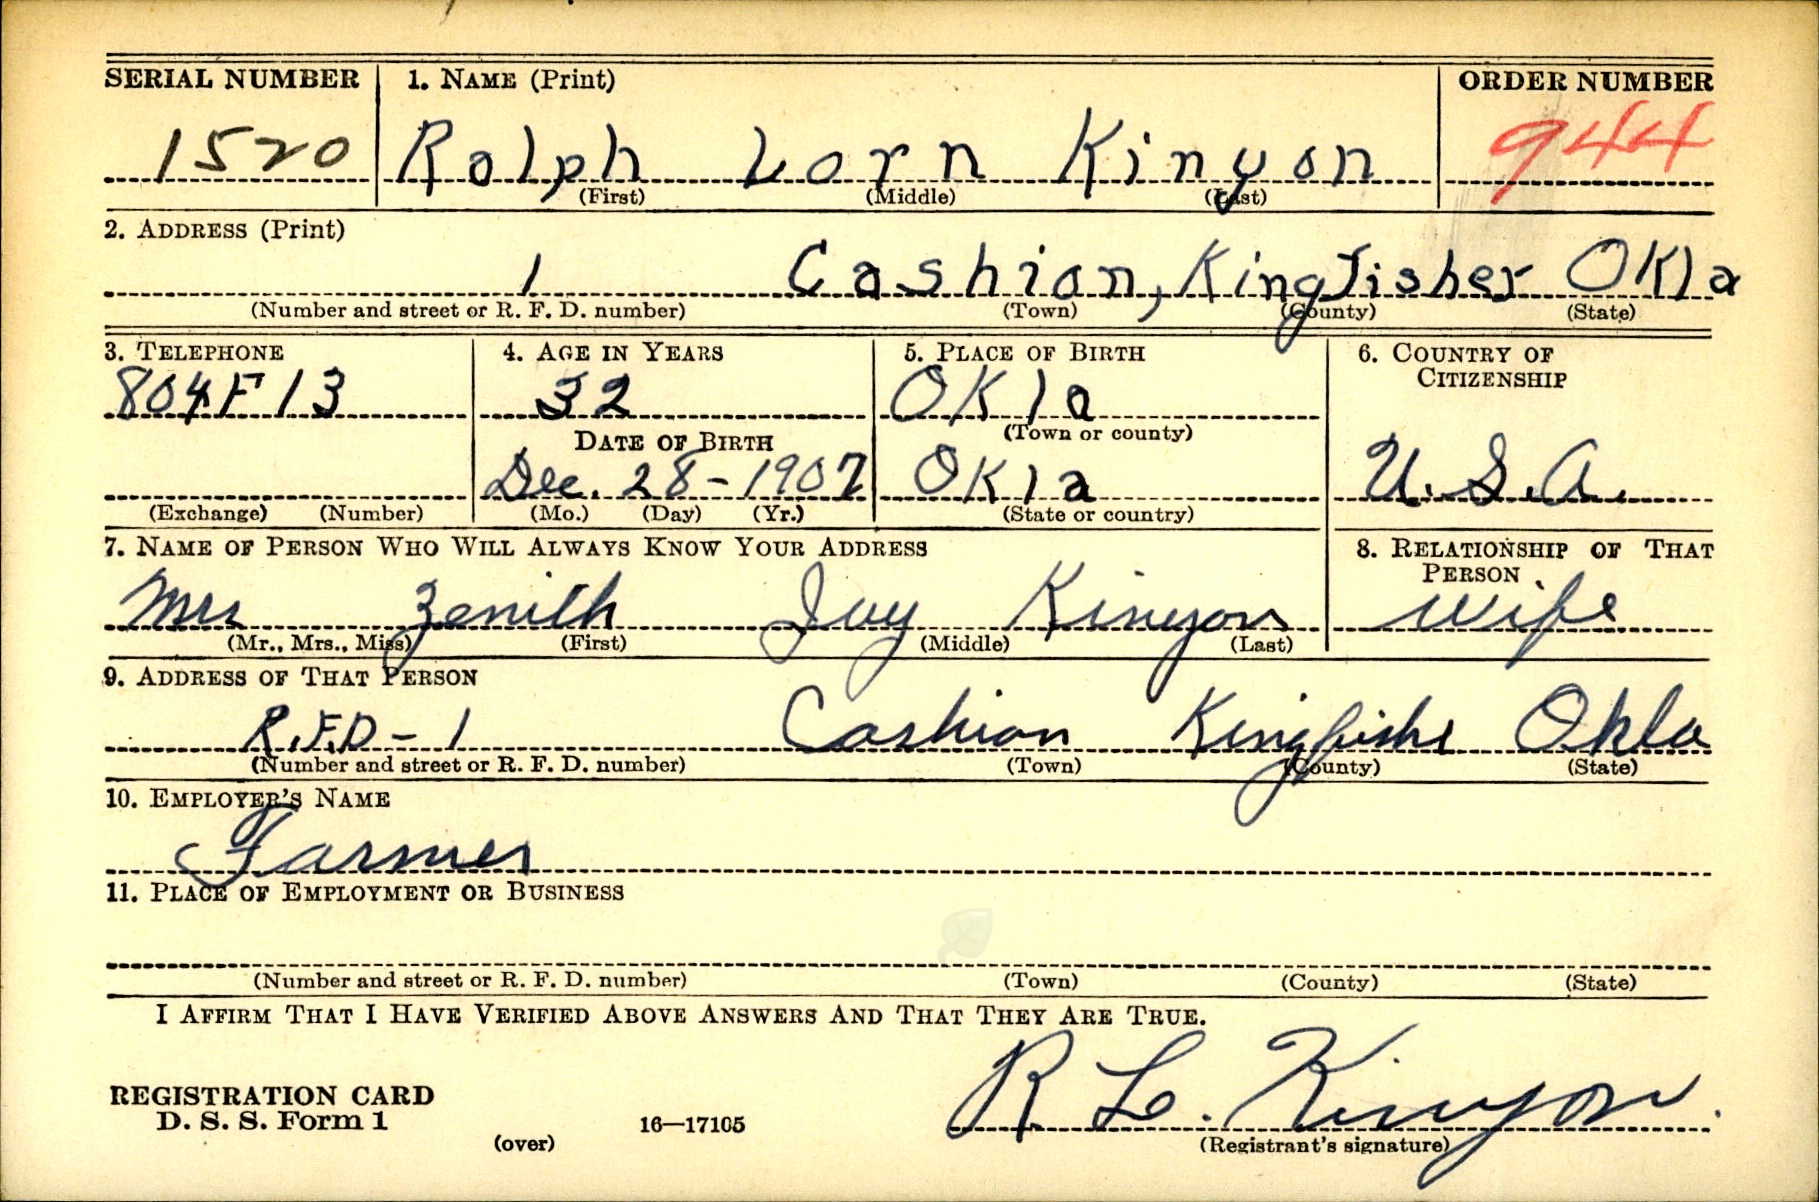 SERIAL NUMBER 1. NAME (Print) ORDER NUMBER
1520 Ralph Lorn Kinyon 944
(First) (Middle) (Last)
2. ADDRESS (Print)
1 Cashion, Kingfisher Okla
(Number and street or R. F. D. number) (Town) (County) (State)
3. TELEPHONE 4. AGE IN YEARS 5. PLACE OF BIRTH 6. COUNTRY OF
CITIZENSHIP
804F13 32 Okla
DATE OF BIRTH (Town or county)
Dec. 28-1907 Okla U.S.A.
(Exchange) (Number) (Mo.) (Day) (Yr.) (State or country)
7. NAME OF PERSON WHO WILL ALWAYS KNOW YOUR ADDRESS 8. RELATIONSHIP OF THAT
PERSON
Mrs Zenith Kinyon wife
(Mr., Mrs., Miss) (First) (Middle) (Last)
9. ADDRESS OF THAT PERSON
R.F.D-1 Cashion Kingfisher Okla
(Number and street or R. F. D. number) (Town) (County) (State)
10. EMPLOYER'S NAME
Farmer
11. PLACE OF EMPLOYMENT OR BUSINESS
(Number and street or R. F. D. number) (Town) (County) (State)
I AFFIRM THAT I HAVE VERIFIED ABOVE ANSWERS AND THAT THEY ARE TRUE.
R L. Kinyon.
REGISTRATION CARD
D. S. S. Form 1 16—17105
(over) (Registrant's signature)